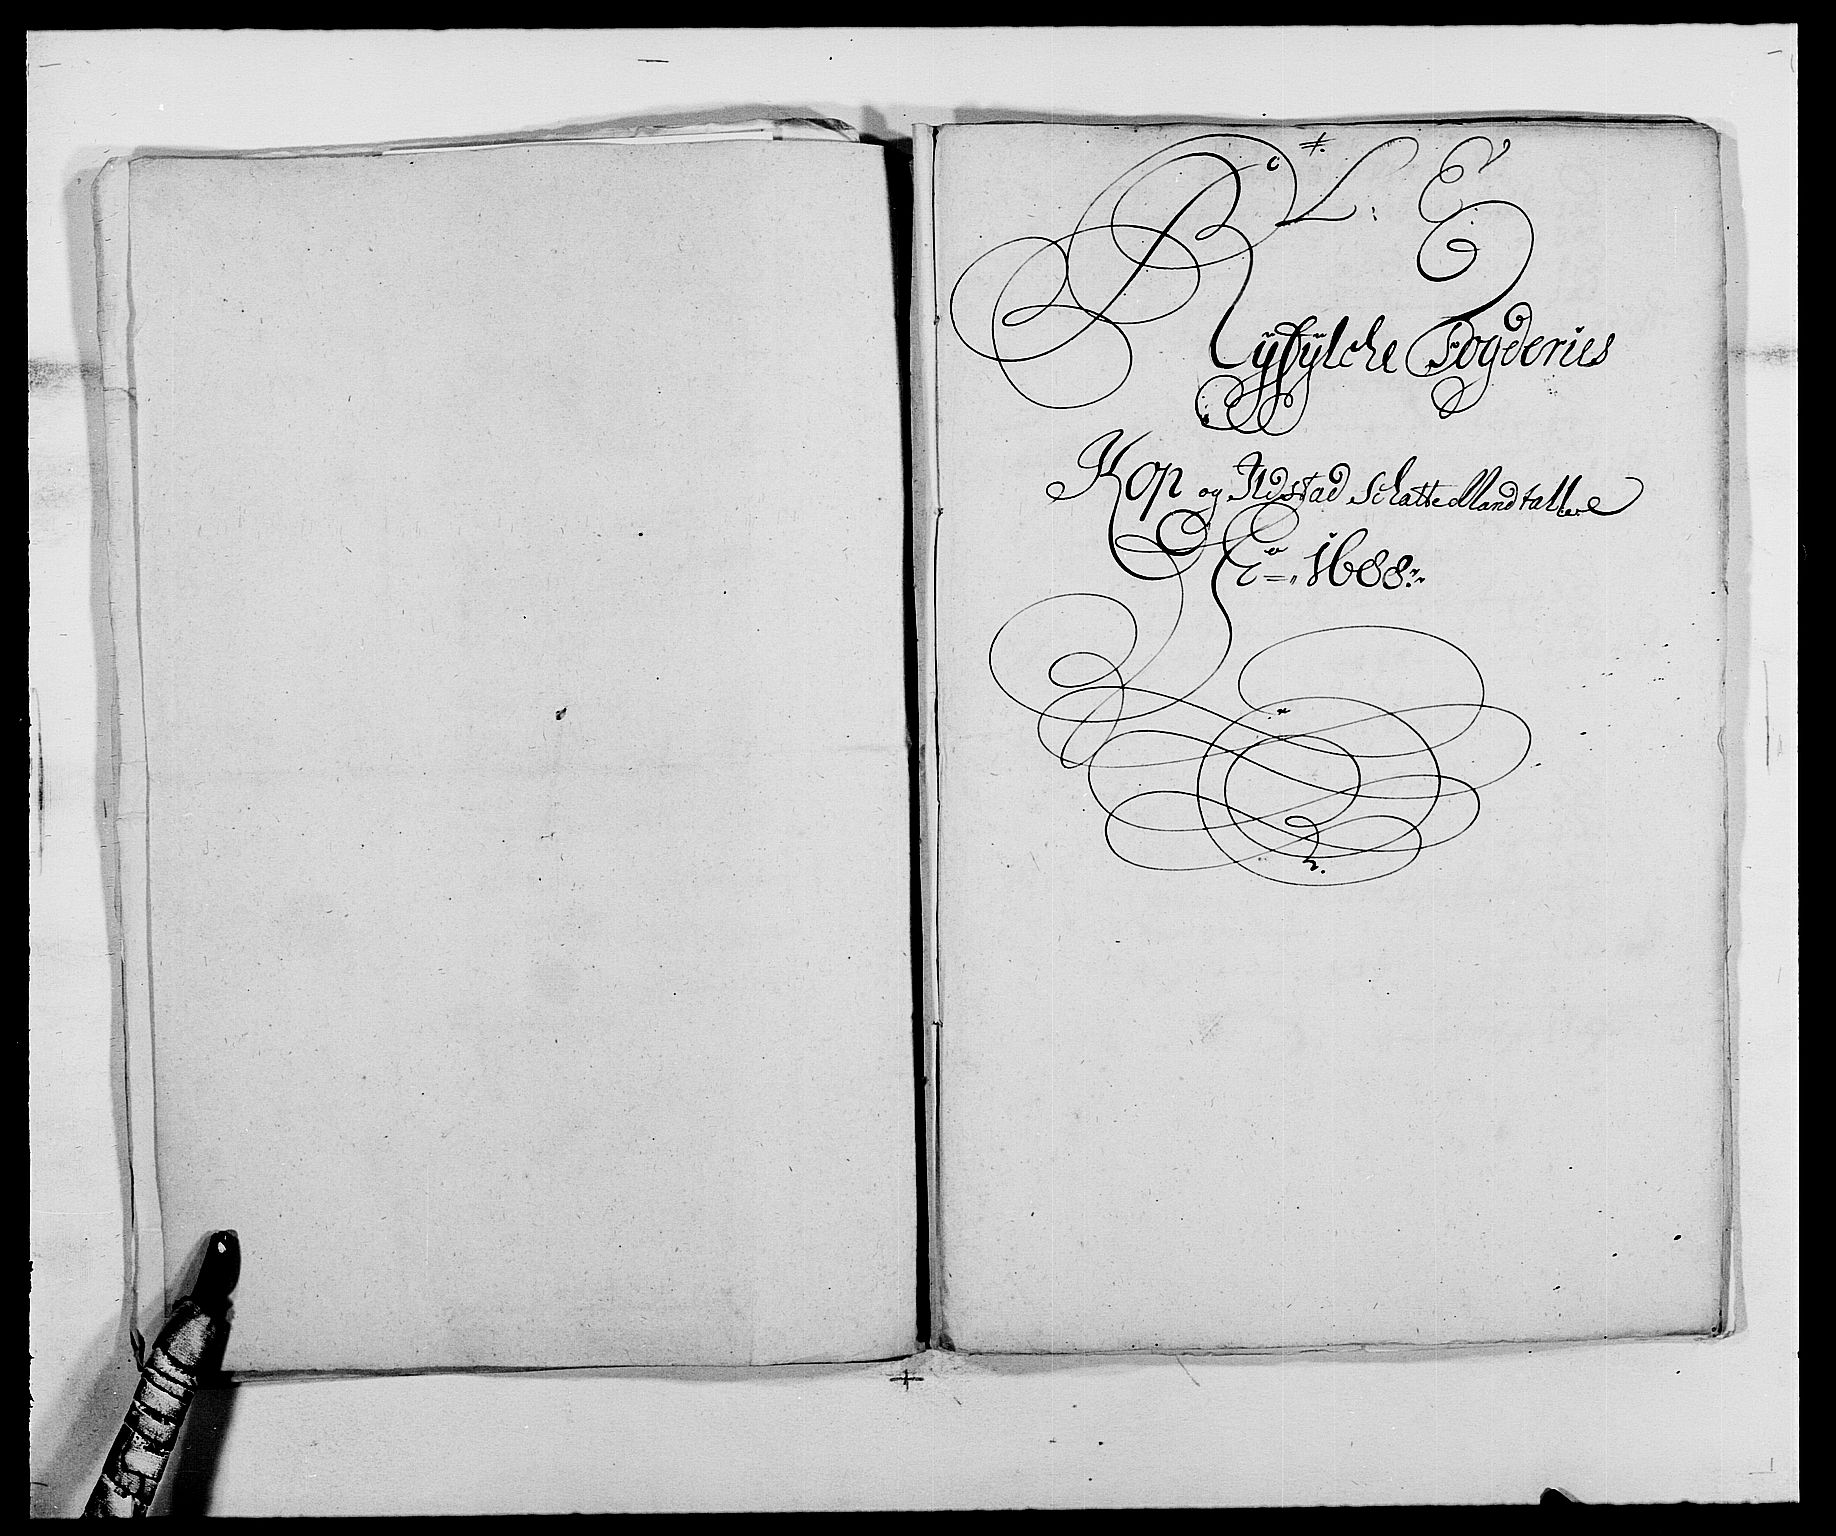 L: E
Ryfylche Fogderies
Kop og Ildstad Schatte Mandtall
1688